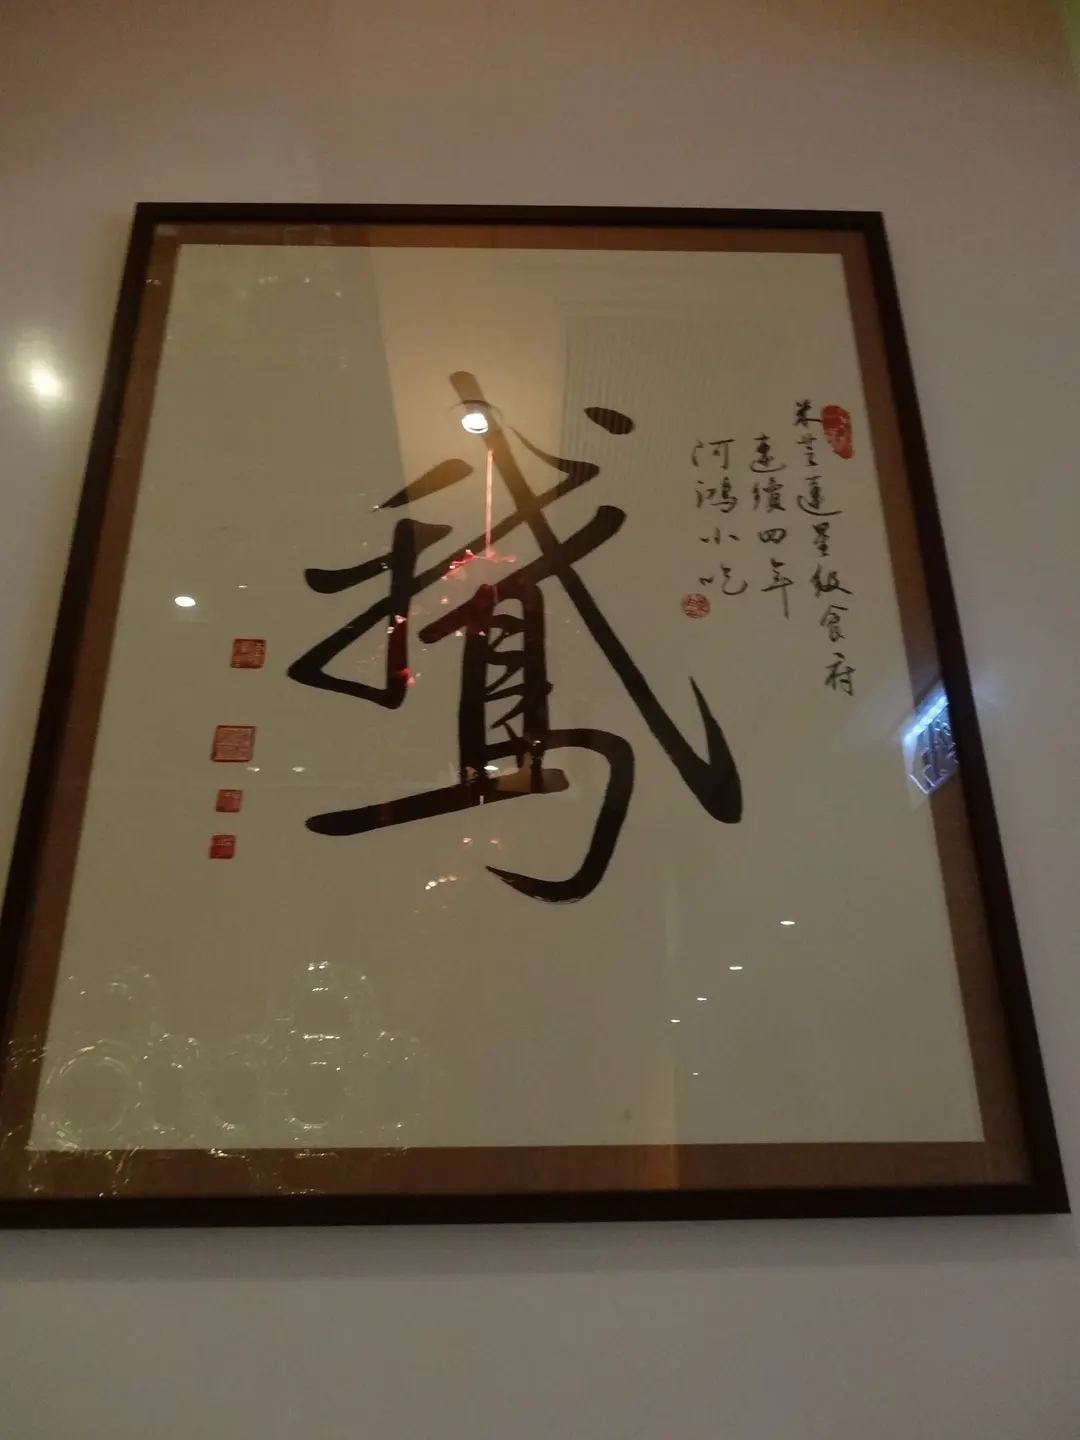 米芝蓮星級食府
連續四年
河鴻小吃
鵞